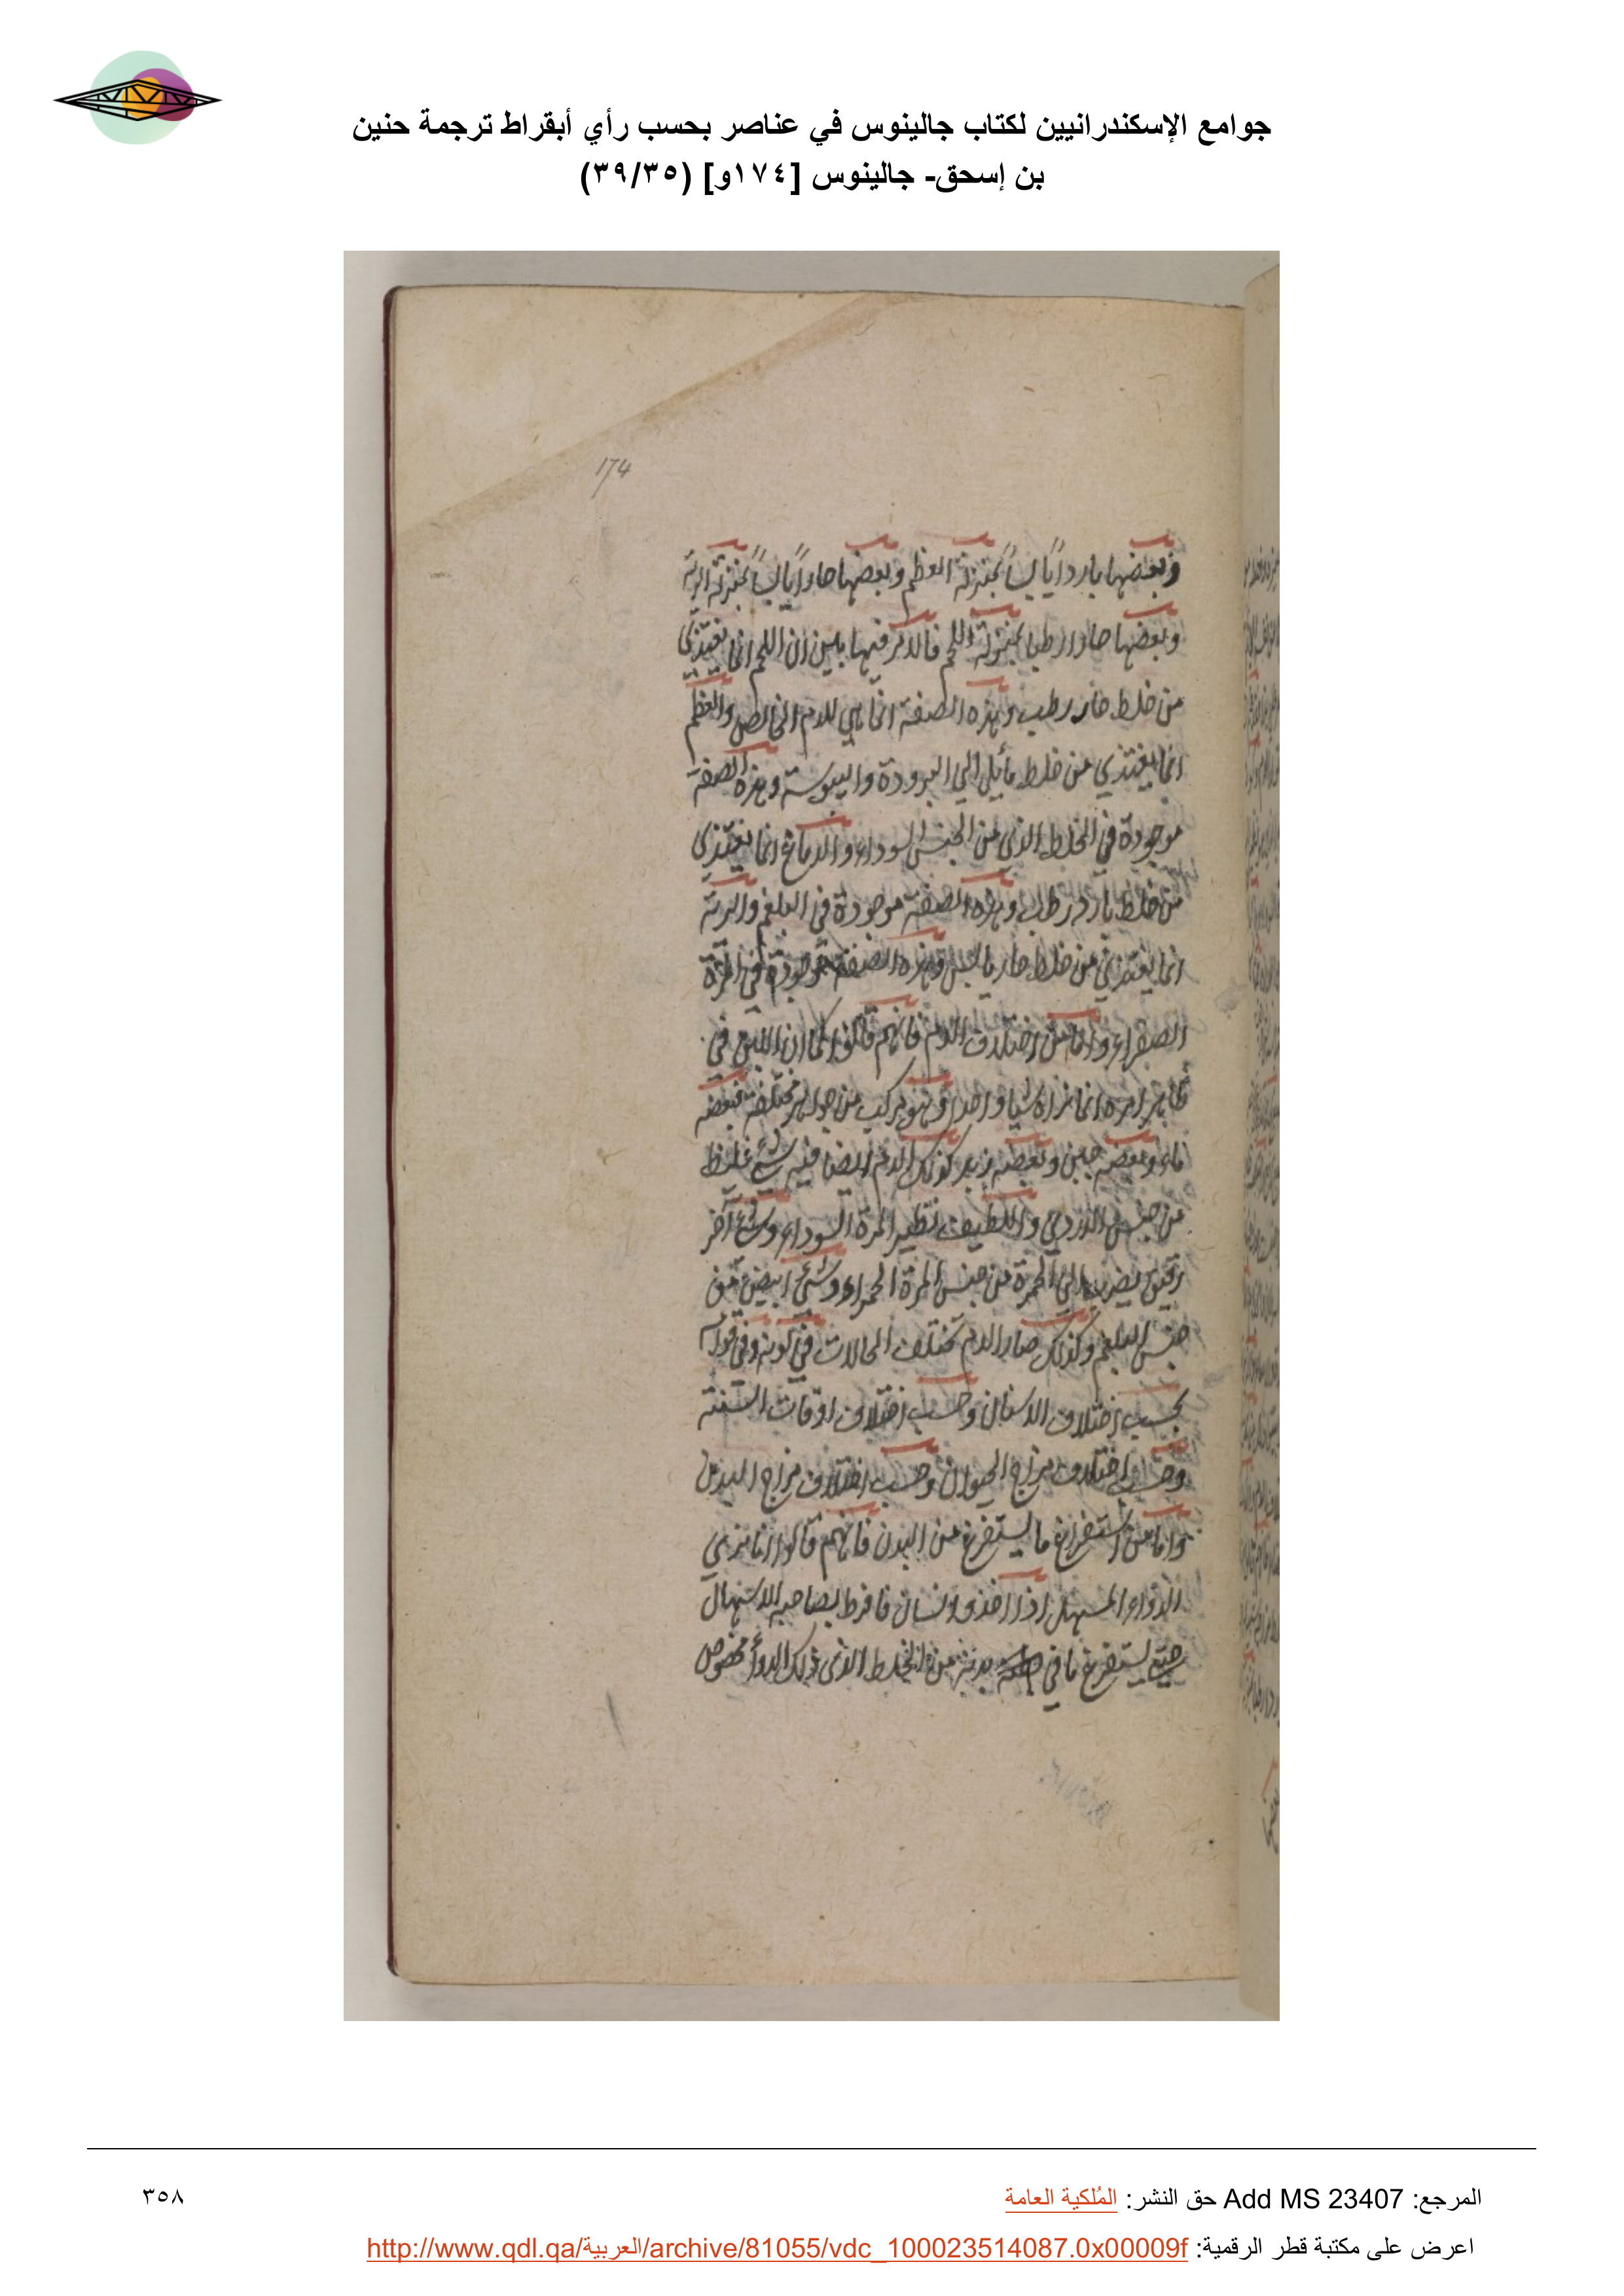 جوامع الإسكندرانيين لكتاب جالينوس في عناصر بحسب رأي أبقراط ترجمة حنين
بن إسحق- جالينوس [١٧٤و] (٣٩/٣٥)
174
وبعضها باردا يابسا بمنزلة العظم وبعضها حارا يابسا بمنزلة الرئة
وبعضها حارا رطبا بمنزلة اللحم فالامر فيها بين ان اللحم انما يغتذي
من خلط حار رطب وهذه الصفة انما هي للدم الخالص والعظم
انما يغتذي من خلط مائل الي البرودة واليبوسة وهذه الصفة
موجودة في الخلط الذي من الجنس السوداء والدماغ انما يغتذي
من خلط بارد رطب وهذه الصفة موجودة في البلغم والرئة
انما يغتذي من خلط حار يابس وهذه الصفة موجودة في المرة
الصفراء واما من اختلاف الدم فانهم قالوا كما ان اللبن في
ظاهر امره انما نراه شيا واحدا وهو مركب من جواهر مختلفة فبعضه
ماء وبعضه جبن وبعضه زبد كذلك الدم ايضا فيه شيء غليظ
من جنس الدردي واللطيف نظير المرة السوداء وشيء آخر
رقيق يضرب الي الحمرة من جنس المرة الحمراء وشيء ابيض من
جنس البلغم وكذلك صار الدم مختلف الحالات في لونه وفي قوام
بحسب اختلاف الاسنان وحسب اختلاف اوقات السنة
وحسب اختلاف مزاج الحيوان وحسب اختلاف مزاج البدن
واما من استفراغ ما يستفرغ من البدن فانهم قالوا انا نري
الدواء المسهل اذا اخذه انسان فافرط بصاحبه الاسهال
حتي يستفرغ ما في بدنه من الخلط الذي ذلك الدواء مخصوص
المرجع: Add MS 23407 حق النشر: المُلكية العامة
٣٥٨
اعرض على مكتبة قطر الرقمية: http://www.qdl.qa/العربية/archive/81055/vdc_100023514087.0x00009f